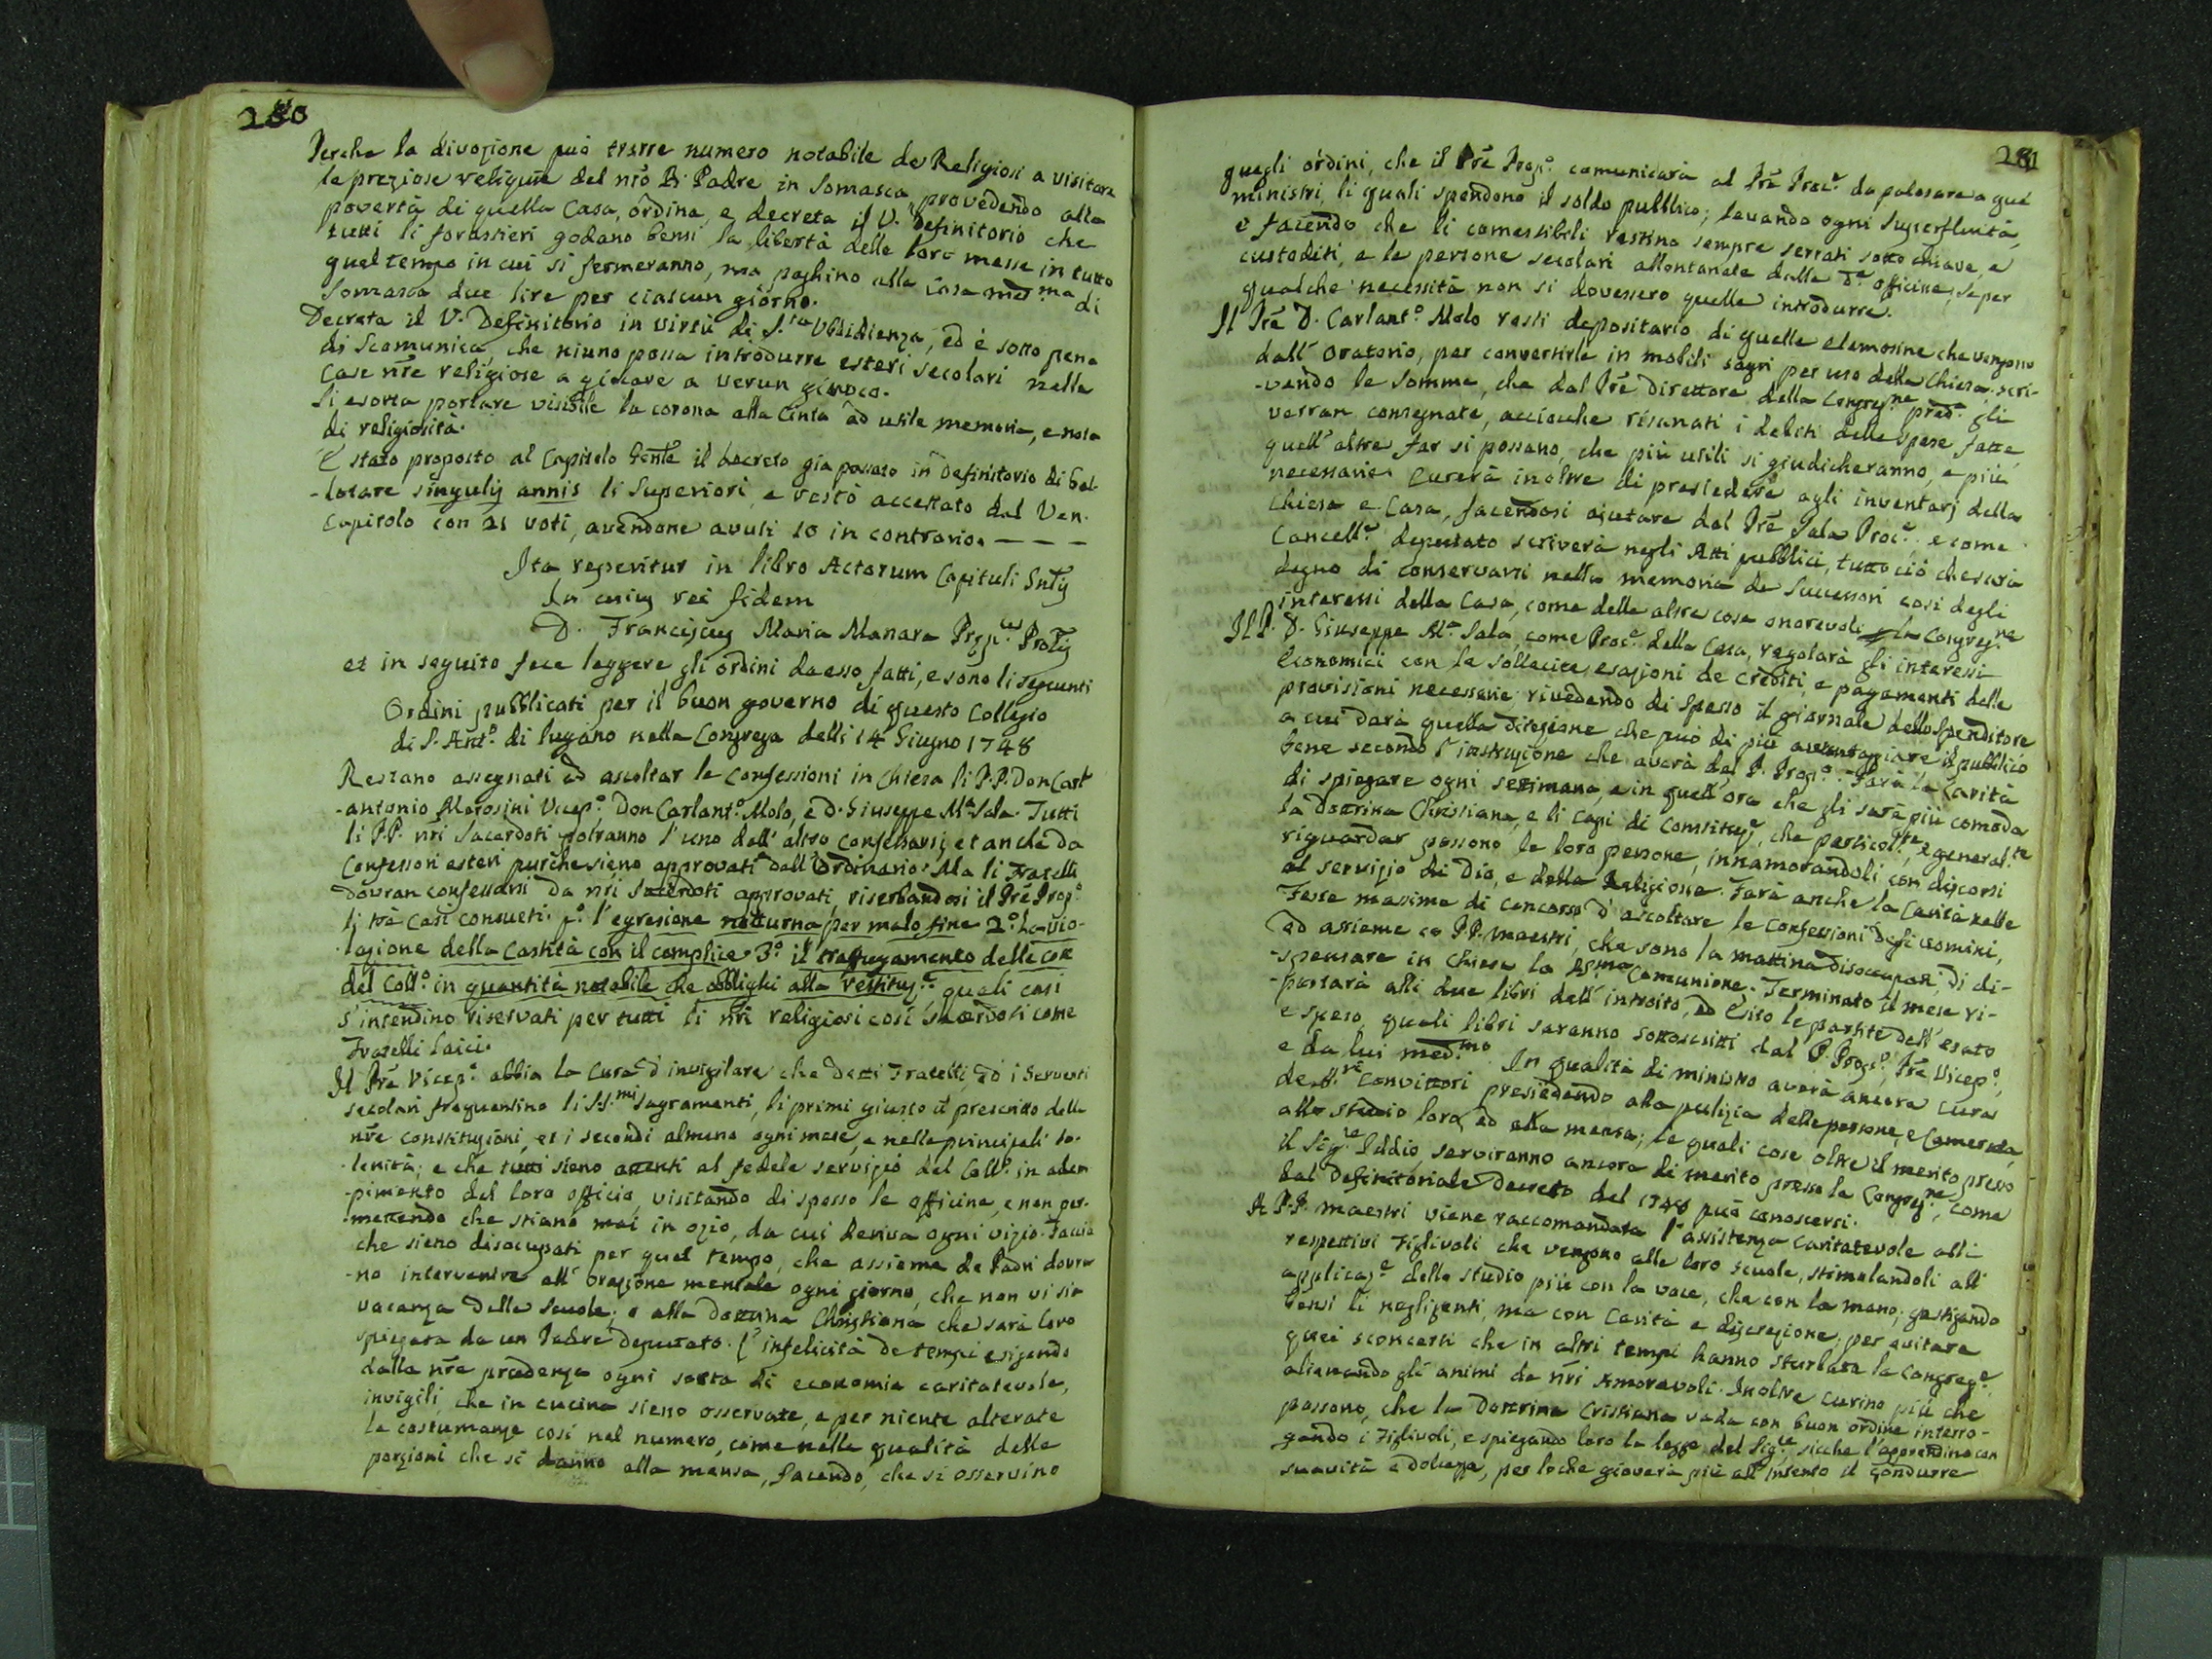 280
Perche la divozione può trarre numero notabile de Religiosi a visitare
le preziose reliquie del nrõ B. Padre in Somasca, provedendo alla
povertà di quella Casa, ordina, e decreta il V. Definitorio che
tutti li forastieri godano bensi la libertà delle loro messe in tutto
quel tempo in cui si fermeranno, ma paghino alla Casa med.ma di
Somasca due lire per ciascun giorno.
Decreta il V. Definitorio in virtù di S.ta Ubbidienza, ed è sotto pena
di Scomunica, che niuno possa introdurre esteri secolari nelle
Case nrẽ religiose a giocare a verun giuoco.
Si esorta portare visibile la corona alla Cinta ad utile memoria, e nota
di religiosità.
È stato proposto al Capitolo Genle il decreto già passato in Definitorio di bal-
-lotare singulis annis li Superiori, e restò accettato dal Ven.
Capitolo con 21 voti, avendone avuti 10 in contrario. - - -
Ita reperitur in libro Actorum Capituli Gnlis
In cuius rei fidem
D. Franciscus Maria Manara Prep.tus Prolis
et in seguito fece leggere gli ordini da esso fatti, e sono li seguenti
Ordini pubblicati per il buon governo di questo Collegio
di S. Ant.o di Lugano nella Congrega delli 14 Giugno 1748
Restano assegnati ad ascoltar le Confessioni in Chiesa li P.P. Don Carl
-antonio Morosini Vicep.o, Don Carlant.o Molo, e D. Giuseppe M.a Sala. Tutti
li P.P. nrĩ Sacerdoti potranno l'uno dall'altro Confessarsi, et anche da
Confessori esteri purche sieno approvati dall'Ordinario. Ma li Fratelli
dovran confessarsi da nrĩ Sacerdoti approvati, riserbandosi il Prẽ Prop.o
li trè Casi consueti. p.o l'egresione notturna per malo fine 2.o La vio-
-lazione della Castità con il complice 3.o il traffugamento delle cose
del Coll.o in quantità notabile che obblighi alla restituz.e quali casi
s'intendino riservati per tutti li nrĩ religiosi così sacerdoti come
Fratelli laici.
Il Prẽ Vicep.o abbia la Cura d'invigilare che detti Fratelli ed i Serventi
secolari frequentino li S.S.mi Sagramenti, li primi giusto il prescritto delle
nrẽ constituzioni, et i secondi almeno ogni mese, e nelle principali so-
-lenità; e che tutti sieno attenti al fedele servizio del Coll.o in adem
-pimento del loro officio, visitando di spesso le officine, e non per-
-mettendo che stiano mai in ozio, da cui deriva ogni vizio. Faccia
che sieno disocupati per quel tempo, che assieme de Padri dovran
-no intervenire all'orazione mentale ogni giorno, che non vi sia
vacanza delle Scuole; e alla dottrina Christiana che sarà loro
spiegata da un Padre deputato. L'infelicità de tempi esigendo
dalla nrẽ prudenza ogni sorta di economia caritatevole,
invigili, che in cucina sieno osservate, e per niente alterate
le costumanze così nel numero, come nella qualità delle
porzioni che si danno alla mensa, facendo, che si osservino
281
quegli ordini, che il Prẽ Prop.o comunicarà al Prẽ Proc.e da palesare a quei
ministri, li quali spendono il soldo pubblico; levando ogni Superfluità,
e facendo che li comessibili restino sempre serrati sotto chiave, e
custoditi, e le persone secolari allontanate dalle d.e officine, se per
qualche necessità non si dovessero quelle introdurre.
Il Prẽ D. Carlant.o Molo resti depositario di quelle elemosine che vengono
dall'Oratorio, per convertirle in mobili sagri per uso della Chiesa scri-
-vendo le somme, che dal Prẽ Direttore della Congreg.ne pred.a gli
verran consegnate, acciocche risanati i debiti delle spese fatte,
quell'altre far si possano, che più utili si giudicheranno, e più
necessarie. Curerà inoltre di presiedere agli inventarj della
Chiesa e Casa, facendosi ajutare dal Prẽ Sala Proc.e e come
Cancell.e deputato scriverà negli Atti pubblici, tutto ciò che sarà
degno di conservarsi nella memoria de Successori così degli
interessi della Casa, come delle altre cose onorevoli la Congreg.ne
Il P. D. Giuseppe M.a Sala come Proc.e della Casa, regolarà gli interessi
economici con le sollecite esazioni de crediti, e pagamenti delle
provisioni necessarie, rivedendo di spesso il giornale dello Spenditore
a cui darà quella direzione che può di più avantagiare il pubblico
bene secondo l'instruzione che averà dal P. Prop.o. Farà la Carità
di spiegare ogni settimana, e in quell'ora che gli sarà più comoda
la dottrina Christiana, e li Capi di Constituz.e, che particol.te, e general.te
riguardar possono le loro persone, innamorandoli con discorsi
al servizio di Dio, e della Religione. Farà anche la Carità nelle
Feste massime di concorso d'ascoltare le Confessioni degli uomini,
ed assieme co P.P. maestri, che sono la mattina disoccupati, di di-
-spensare in Chiesa la SS.ma Comunione. Terminato il mese ri-
-portarà alli due libri dell'introito, ed Esito le partite dell'esato
e speso, quali libri saranno sottoscritti dal P. Prop.o, Prẽ Vicep.o,
e da lui med.mo In qualità di ministro averà ancora cura
de Convittori presiedendo alla pulizia delle persone, e Camerata,
allo studio loro, ed alla mensa; le quali cose oltre il merito presso
il Sig.re Iddio, serviranno ancora di merito presso la Congreg.ne, come
dal Definitoriale Decreto del 1748 può conoscersi.
A P.P. maestri viene raccomandata l'assistenza caritatevole alli
respettivi Figlivoli che vengono alle loro scuole, stimolandoli all'
applicaz.e dello studio più con la voce, che con la mano; gastigando
bensi li negligenti, ma con Carità e discrezione, per evitare
quei sconcerti che in altri tempi hanno sturbata la Congreg.e,
alienando gli animi de nrĩ Amorevoli. Inoltre curino più che
possono, che la Dottrina Cristiana vada con buon ordine interro-
gando i Figlivoli, e spiegando loro la legge del Sig.re, sicche l'apprendino con
suavità e dolcezza, per loche gioverà più all'intento il condurre